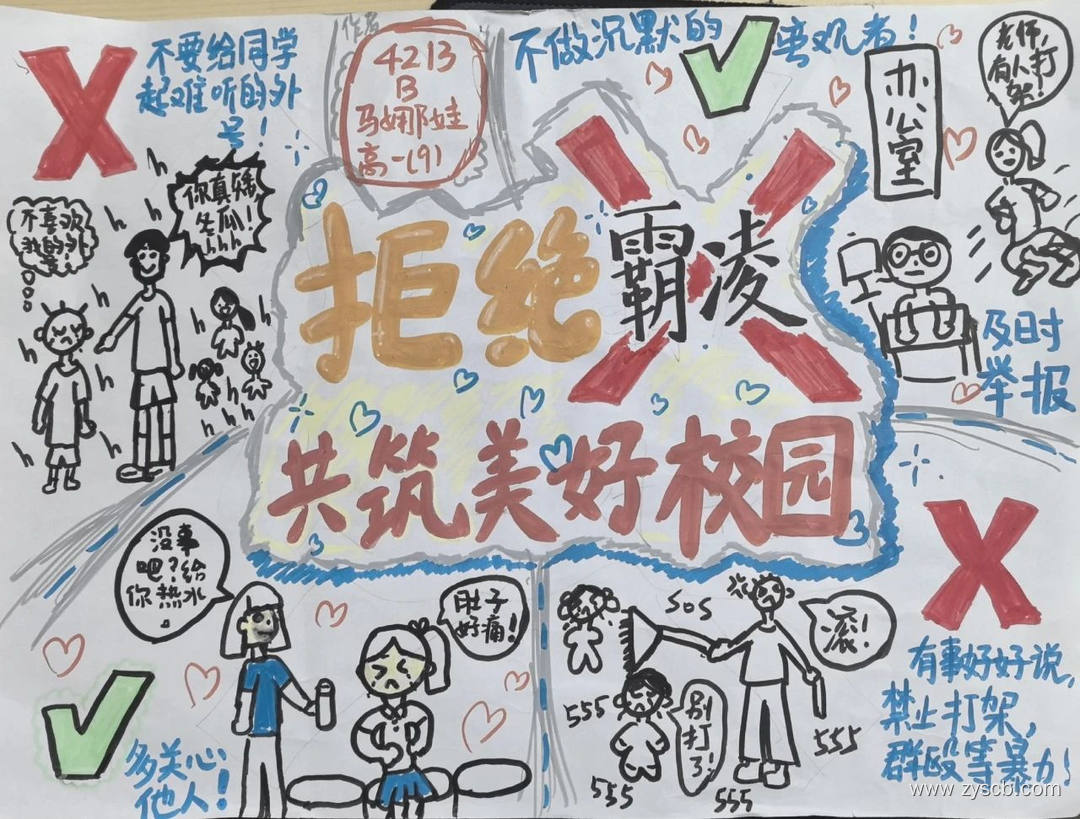 不要给同学
起难听的外
号！
作者
4213
B
马娜娃
高一(9)
不做沉默的
旁观者！
办公室
老师，
有人打
架！
不喜欢
我的外
号！
你真矮，
冬瓜！
hhh
拒绝
霸凌
共筑美好校园
及时
举报
没事
吧？给
你热水
。
肚子
好痛！
多关心
他人！
SOS
滚！
别
打
了！
555
555
555
555
有事好好说，
禁止打架，
群殴等暴力！
www.zyscb.com